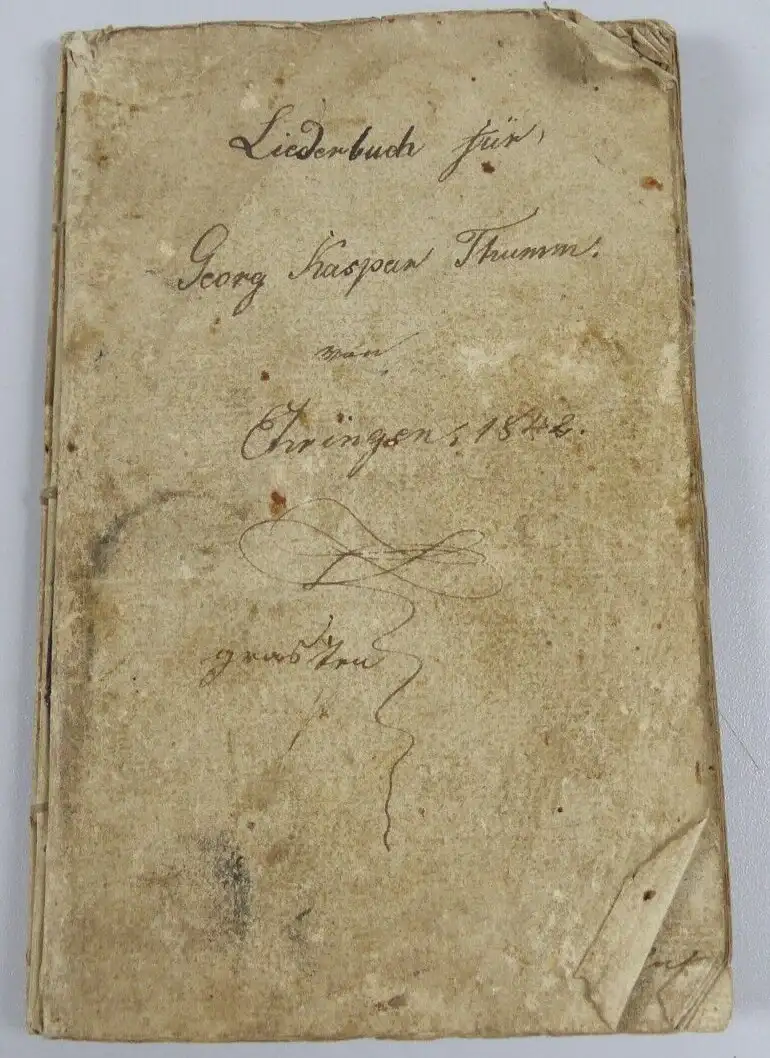 Liederbuch für
Georg Kaspar Thumm.
von
Ehningen, 1842.